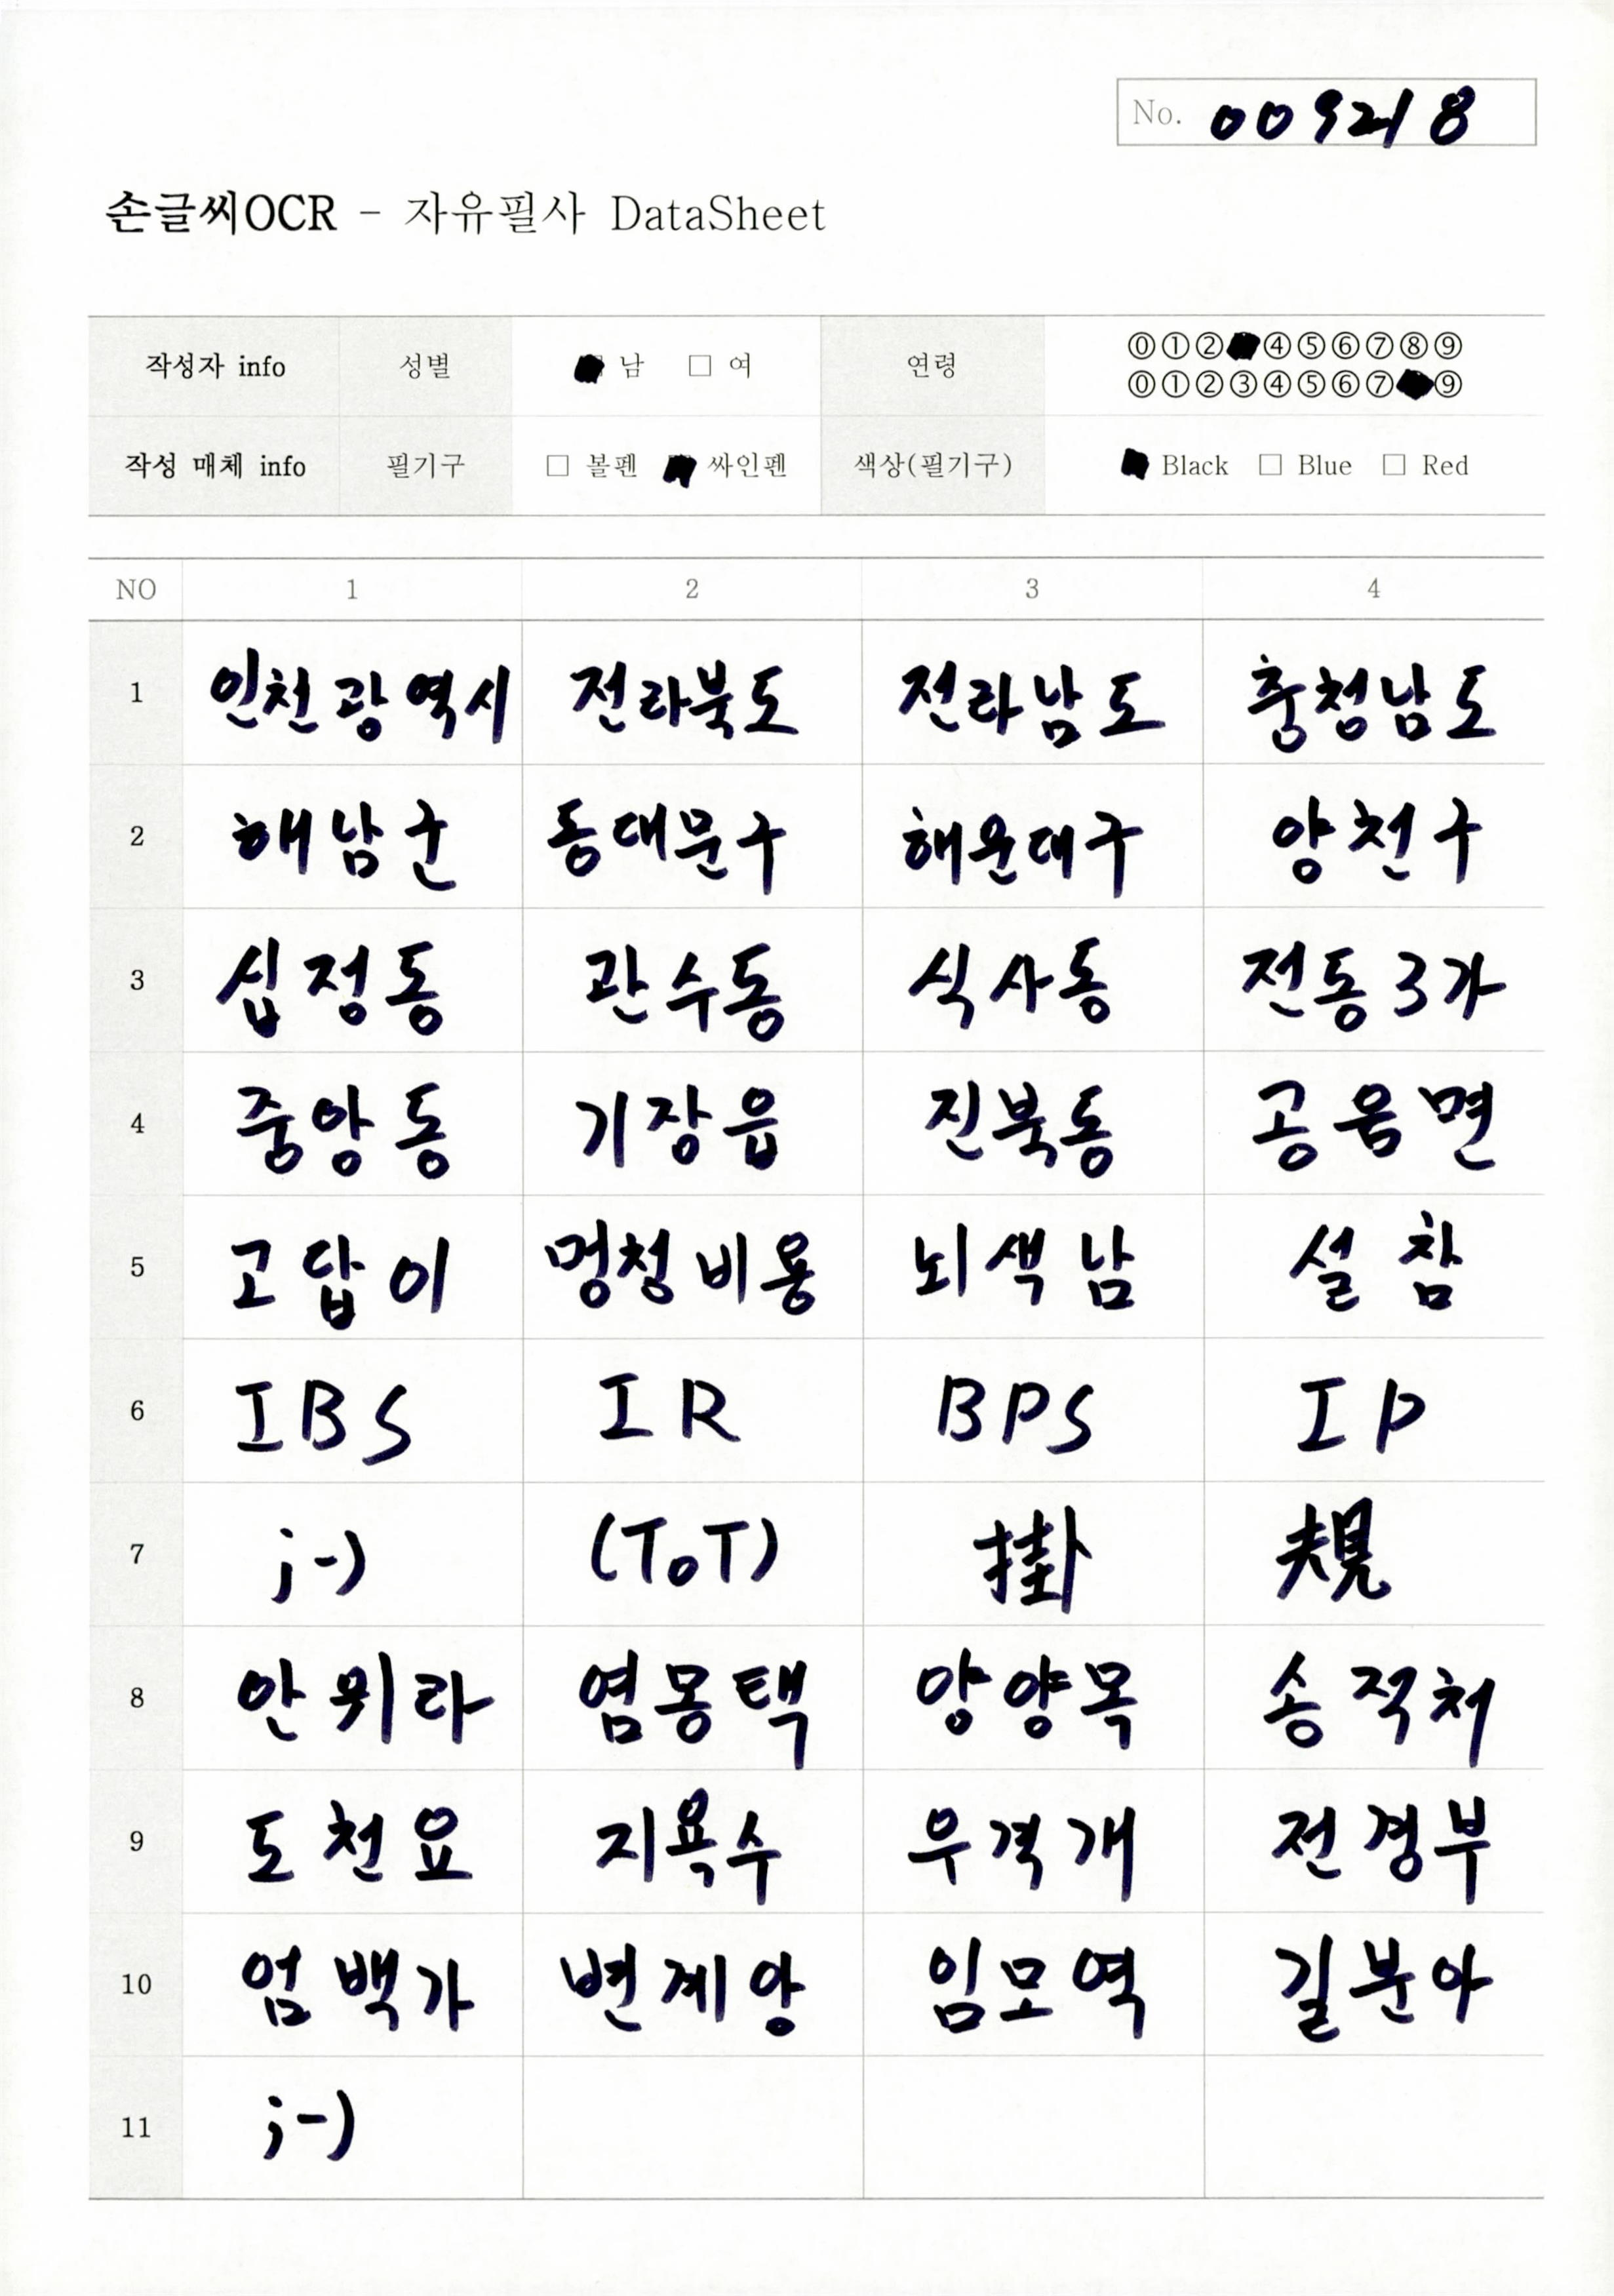 No. 009218
손글씨OCR - 자유필사 DataSheet
작성자 info 성별 남 □ 여 연령 ⓪①②④⑤⑥⑦⑧⑨
⓪①②③④⑤⑥⑦⑨
작성 매체 info 필기구 □ 볼펜 싸인펜 색상(필기구) Black □ Blue □ Red
NO 1 2 3 4
1 인천광역시 전라북도 전라남도 충청남도
2 해남군 동대문구 해운대구 양천구
3 십정동 관수동 식사동 전동3가
4 중앙동 기장읍 진북동 공음면
5 고답이 멍청비용 뇌색남 설참
6 IBS IR BPS IP
7 ;-) (ToT) 掛 規
8 안위라 염몽택 양양목 송적처
9 도천요 지욕수 우격개 전경부
10 엄백가 변계앙 임모역 길분아
11 ;-)